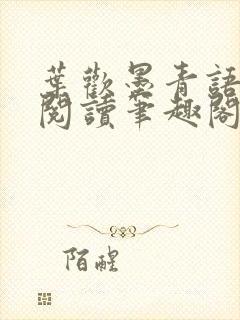 葉歡墨青語
閱讀筆趣閣
陌醒